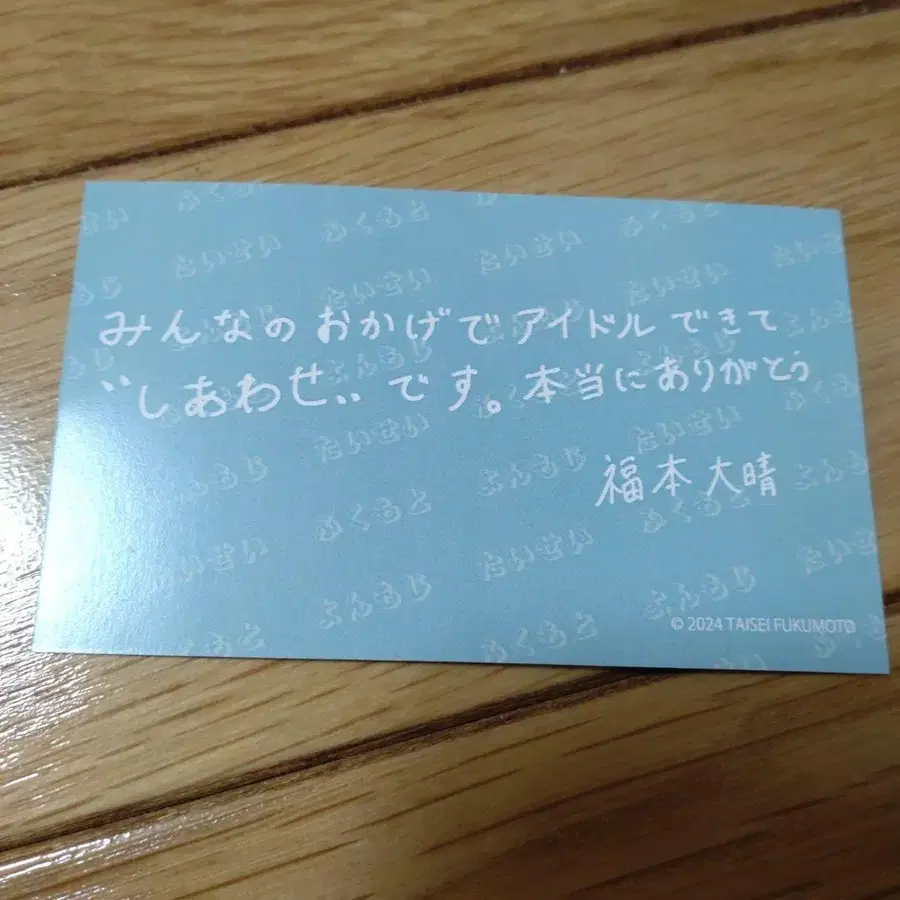 みんなのおかげでアイドルできて
"しあわせ"です。本当にありがとう
福本大晴
© 2024 TAISEI FUKUMOTO
ふくもと
たいせい
よんもじ